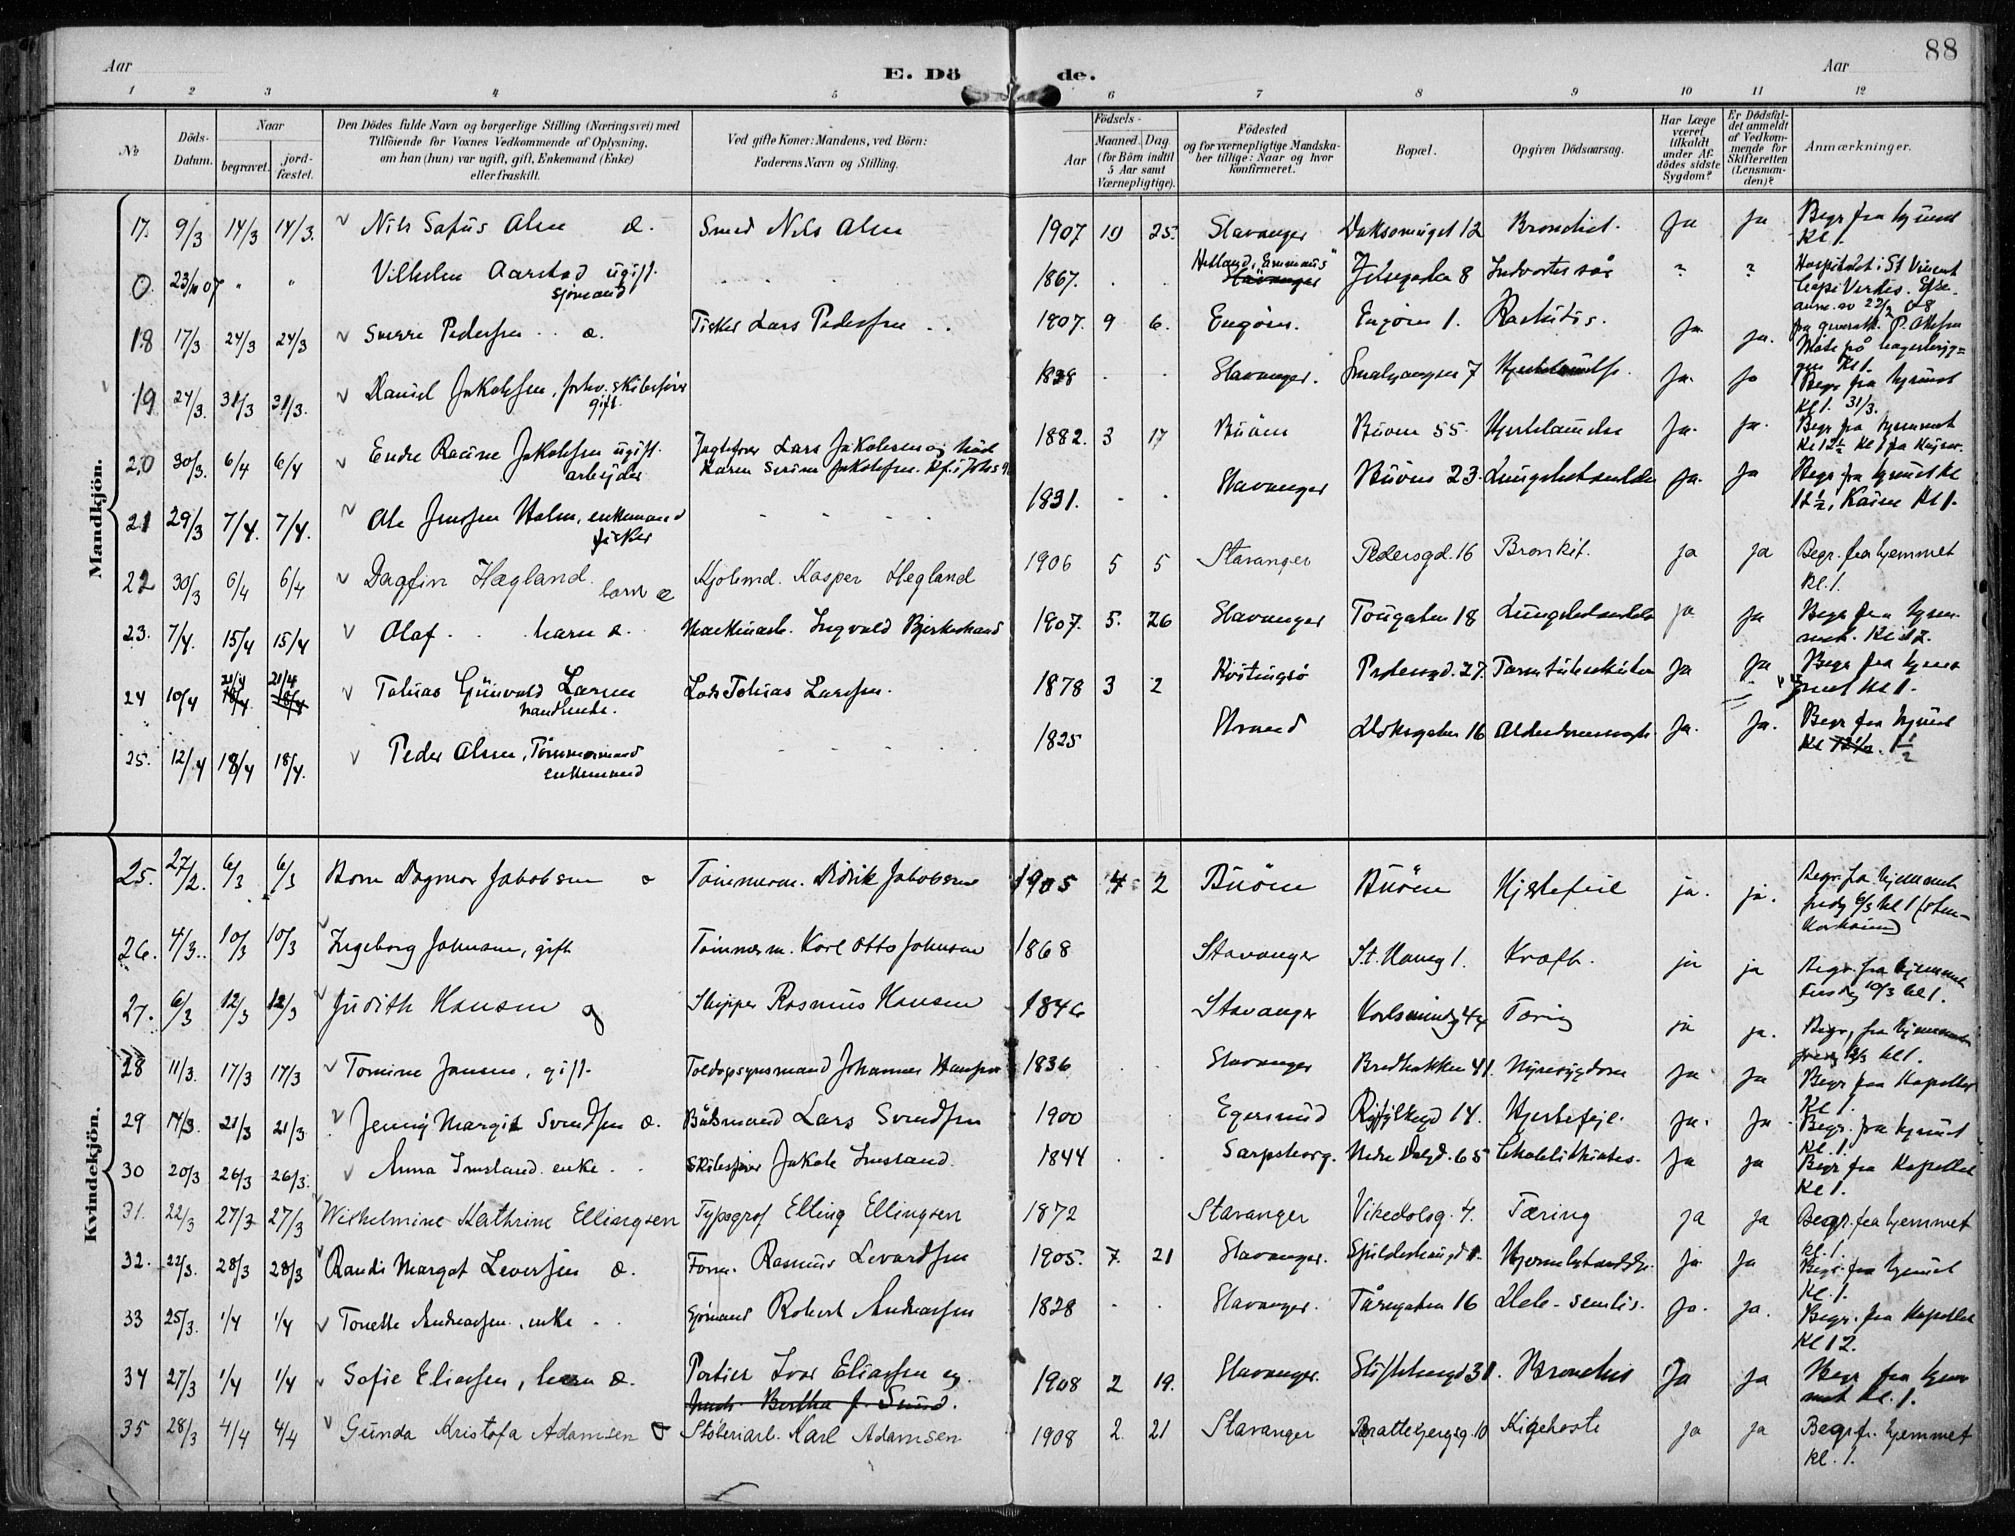 88
Aar
E. Dö de.
Aar
1 2 3 4 5 6 7 8 9 10 11 12
No
Döds-Datum.
Naar
begravet.
jord-fæstet.
Den Dödes fulde Navn og borgerlige Stilling (Næringsvei) med
Tilföiende for Voxnes Vedkommende af Oplysning,
om han (hun) var ugift, gift, Enkemand (Enke)
eller fraskilt.
Ved gifte Koner: Mandens, ved Börn:
Faderens Navn og Stilling.
Födsels-
Aar
Maaned. Dag
(for Börn indtil
5 Aar samt
Værnepligtige).
Födested
og for værnepligtige Mandska-
ber tillige: Naar og hvor
konfirmeret.
Bopæl.
Opgiven Dödsaarsag.
Har Læge
været
tilkaldt
under Af-
dödes sidste
Sygdom?
Er Dödsfal-
det anmeldt
af Vedkom-
mende for
Skifteretten
(Lensman-
den)?
Anmærkninger.
Mandkjön.
17. 9/3 14/3 14/3. Nils Sofus Alne æ. Smed Nils Alne 1907 10 25. Stavanger 12 Bronchit. Ja Ja Begr. fra hjemmet Kl 1.
0. 23/10 07 " " Vilhelm Aarstad ugift. sjömand 1867. Helland, "Emmaus" Stavanger Jelsegaden 8 Indvortes sår ? ? Hospitalet i St Vincent
18 17/3 24/3 24/3 Sverre Pedersen æ. Fisker Lars Pedersen 1907. 9 6. Engöen. Engöen 1. Rachitis. Ja Ja.
19 24/3. 31/3 31/3. Daniel Jakobsen, forhv. skibsförer gift. 1838 Stavanger. 7 Ja. Ja Begr fra hjemmet Kl. 1. 31/3.
20 30/3. 6/4 6/4 Endre Racine Jakobsen ugift. arbeider Lars Jakobsen og Karen Serine Jakobsen. 1882. 3 17 Buöen Buöen 55. Hjertelammelse Ja. Ja. Begr fra hjemmet
21 29/3 7/4. 7/4. Ole Jenssen Holm, enkemand fisker 1831. Stavanger Buöen 23. Lungebetændelse Ja. Ja Begr fra hjemmet kl 12 1/2, Kaien Kl 1.
22 30/3 6/4 6/4 Dagfin Hægland. barn æ Hegland 1906 5 5 Stavanger Pedersgd. 16 Bronkit. ja ja Begr. fra hjemmet kl. 1.
23. 7/4. 15/4 15/4 Olaf barn æ. Maskinarb. Ingvald Bjerkestrand 1907. 5. 26 Stavanger Tougaten 18 Lungebetændelse ja ja Begr fra hjemmet. Kl 12.
24 10/4 21/4 18/4 21/4 18/4 Tobias Günvald Larsen handlende. Lods Tobias Larssen. 1878 3 2 Kvitingsö Pedersgd. 27. Tarmtuberkulose Ja Ja Begr fra hjemmet kl 1.
25. 12/4 18/4 18/4. Peder Olsen, Tömmermand enkemand 1825 Strand 16 Alderdomssvagh. Ja. Ja. Begr fra hjemmet Kl 12 1/2. 1 1/2
Kvindekjön.
25. 27/2. 6/3 6/3 Born Dagmar Jakobsen æ Tömmerm. Didrik Jakobsen 1905 4 2 Buöen Buöen Hjertefeil ja. ja. Begr. fra hjemmet fredg 6/3 kl 1
26. 4/3. 10/3 10/3 Ingeborg Johnsen, gift Tömmerm. Karl Otto Johnsen 1868 Stavanger St. Hansg 1. Kræft. ja ja Begr. fra hjemmet Tirsdg 10/3 kl 1.
27. 6/3 12/3 12/3 Judith Hansen g Skipper Rasmus Hansen 1846 Stavanger Karlsmindeg 44 Tæring ja ja. Begr, fra hjemmet 12/3 kl 1.
28 11/3. 17/3 17/3 Tomine Jansen, gift. Toldopsynsmand Johannes Hansen 1836 Stavanger Bredbakken 41. Nyresygdom Ja Ja Begr fra Kapellet Kl 1.
29 14/3. 21/3 21/3 Jenny Margit Svendsen æ. Bådsmand Lars Svendsen 1900 Egersund Ryfylkegd 14. Hjertefeil. Ja. Ja Begr. fra hjemmet Kl. 1.
30 20/3 26/3 26/3. Anna Imsland enke. Skibsförer Jakob Imsland. 1844 Sarpsborg. Nedre Dalgd. 65 Cholelithiasis. Ja Ja Begr fra Kapellet Kl 1.
31. 22/3 27/3 27/3 Wilhelmine Kathrine Ellingsen Typograf Elling Ellingsen 1872 Stavanger Vikedalsg. 4. Tæring ja ja Begr. fra hjemmet kl. 1.
32. 22/3. 28/3 28/3 Randi Margot Leversen æ. Form. Rasmus Levardsen 1905. 7. 21 Stavanger. Gjilderhaugd 1. Ja Ja Begr. fra hjemmet Kl. 1.
33 25/3. 1/4 1/4 Tonette Andreassen, enke. Sjömand Robert Andreassen 1828 Stavanger. Tårngaden 16 Ja. Ja. Begr. fra Kapellet Kl 12.
34 27/3 1/4 1/4 Sofie Eliassen, barn æ. Portier Ivar Eliassen og Bertha J. Sund. 1908 2 19. Stavanger. 31. Bronchit Ja Ja Begr fra hjemmet kl. 1.
35 28/3 4/4 4/4 Gunda Kristofa Adamsen æ Stöberiarb. Karl Adamsen 1908 2. 21 Stavanger Brattebjergsg. 10 Kighoste ja ja Begr. fr. hjemmet kl. 1.